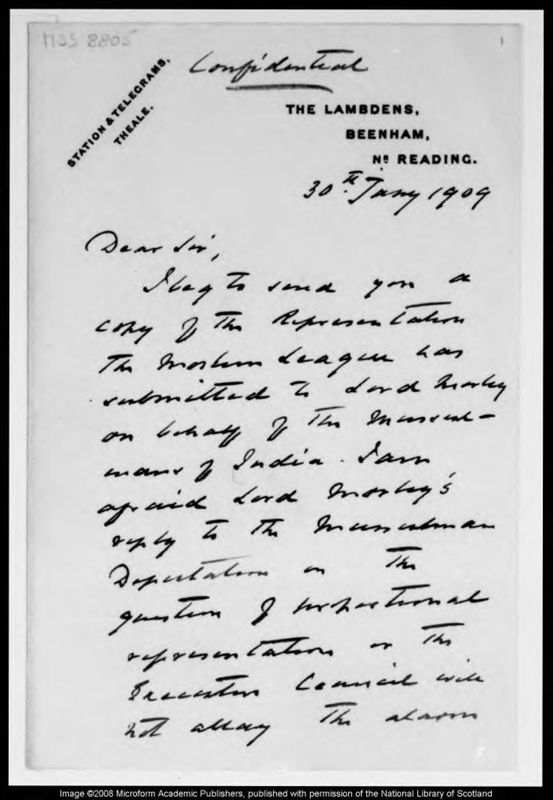 MSS 8805
1
Confidential
STATION & TELEGRAMS,
THEALE.
THE LAMBDENS,
BEENHAM,
NR READING.
30th Jany 1909
Dear Sir,
I beg to send you a
copy of the Representation
the Moslem League has
submitted to Lord Morley
on behalf of the Mussul-
mans of India. I am
afraid Lord Morley's
reply to the Mussulman
Deputation on the
question of proportional
representation or the
Executive Council will
not allay the alarm
Image ©2008 Microform Academic Publishers, published with permission of the National Library of Scotland